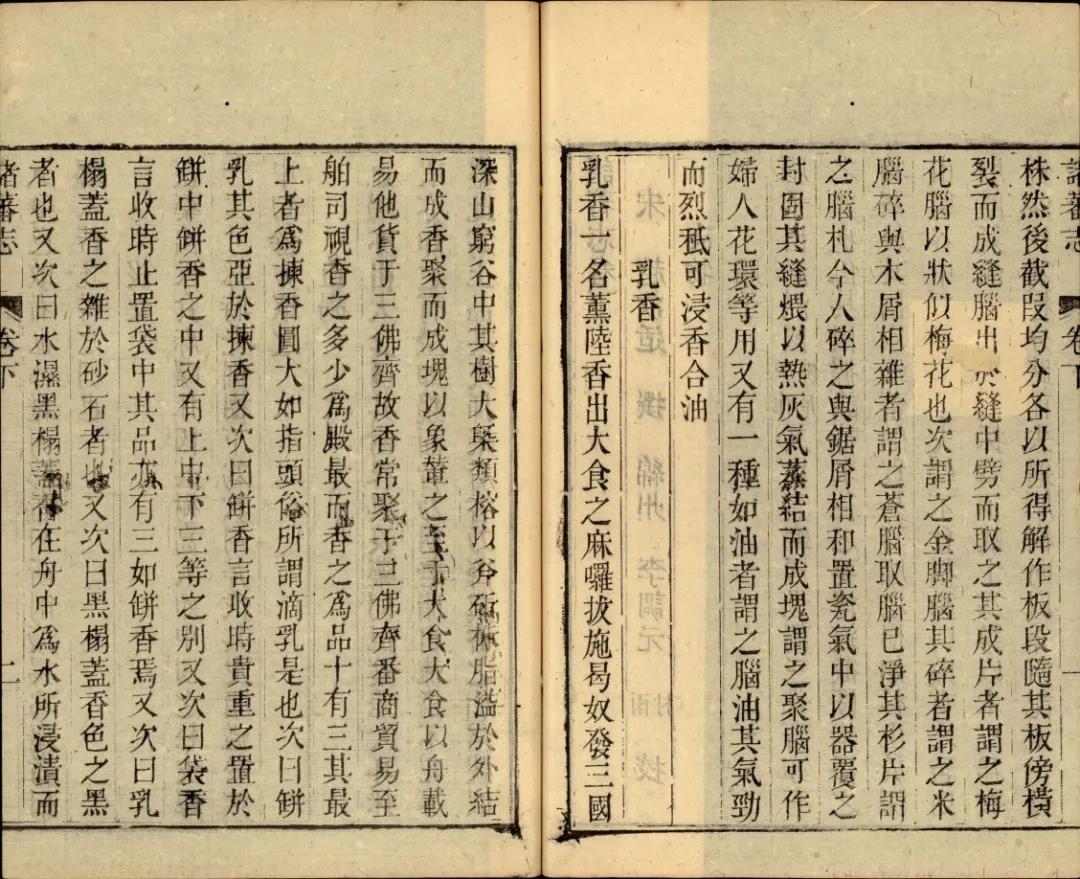 諸蕃志 卷下 一
株然後截段均分各以所得解作板段隨其板傍橫
裂而成縫腦出於縫中劈而取之其成片者謂之梅
花腦以狀似梅花也次謂之金脚腦其碎者謂之米
腦碎與木屑相雜者謂之蒼腦取腦已淨其杉片謂
之腦札今人碎之與鋸屑相和置瓷氣中以器覆之
封固其縫煨以熱灰氣蒸結而成塊謂之聚腦可作
婦人花環等用又有一種如油者謂之腦油其氣勁
而烈秪可浸香合油
乳香
乳香一名薰陸香出大食之麻囉拔施曷奴發三國
深山窮谷中其樹大槩類榕以斧斫株脂溢於外結
而成香聚而成塊以象輦之至于大食大食以舟載
易他貨于三佛齊故香常聚于三佛齊番商貿易至
舶司視香之多少為殿最而香之為品十有三其最
上者為揀香圓大如指頭俗所謂滴乳是也次曰缾
乳其色亞於揀香又次曰缾香言收時貴重之置於
缾中缾香之中又有上中下三等之別又次曰袋香
言收時止置袋中其品亦有三如缾香焉又次曰乳
榻蓋香之雜於砂石者也又次曰黑榻蓋香色之黑
者也又次曰水濕黑榻蓋香在舟中為水所浸漬而
諸蕃志 卷下 二